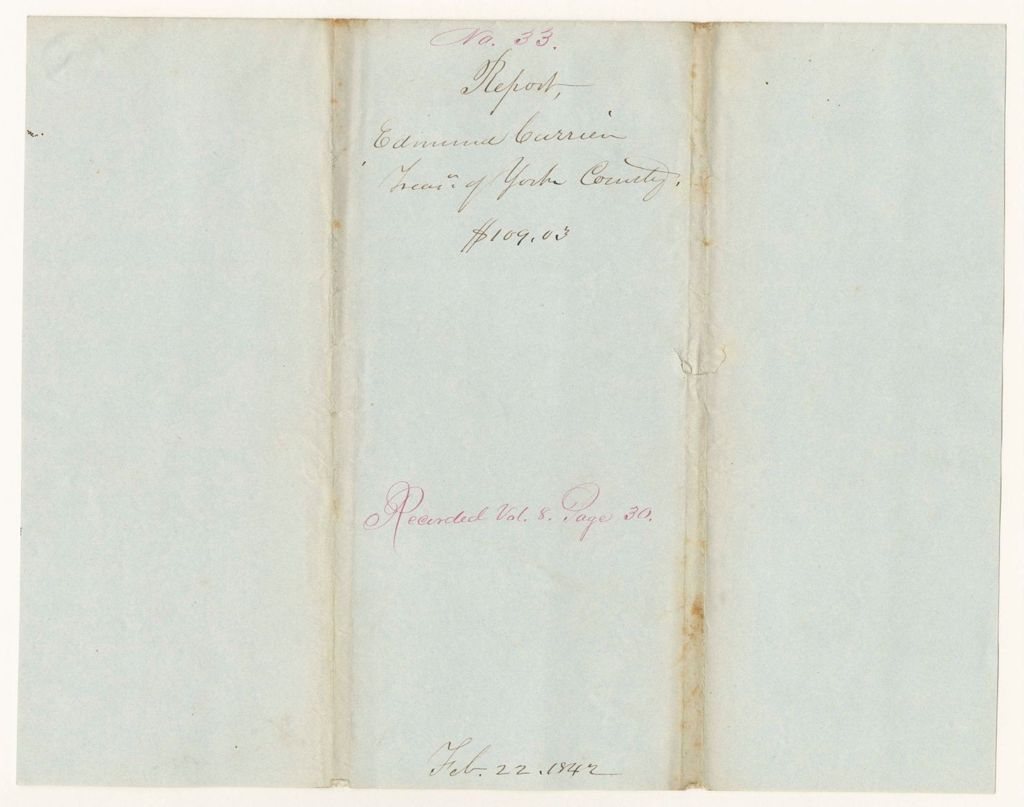 No. 33.
Report,
Edmund Currier
Treasr. of York County.
$109.03
Recorded Vol. 8. Page 30.
Feb. 22. 1842